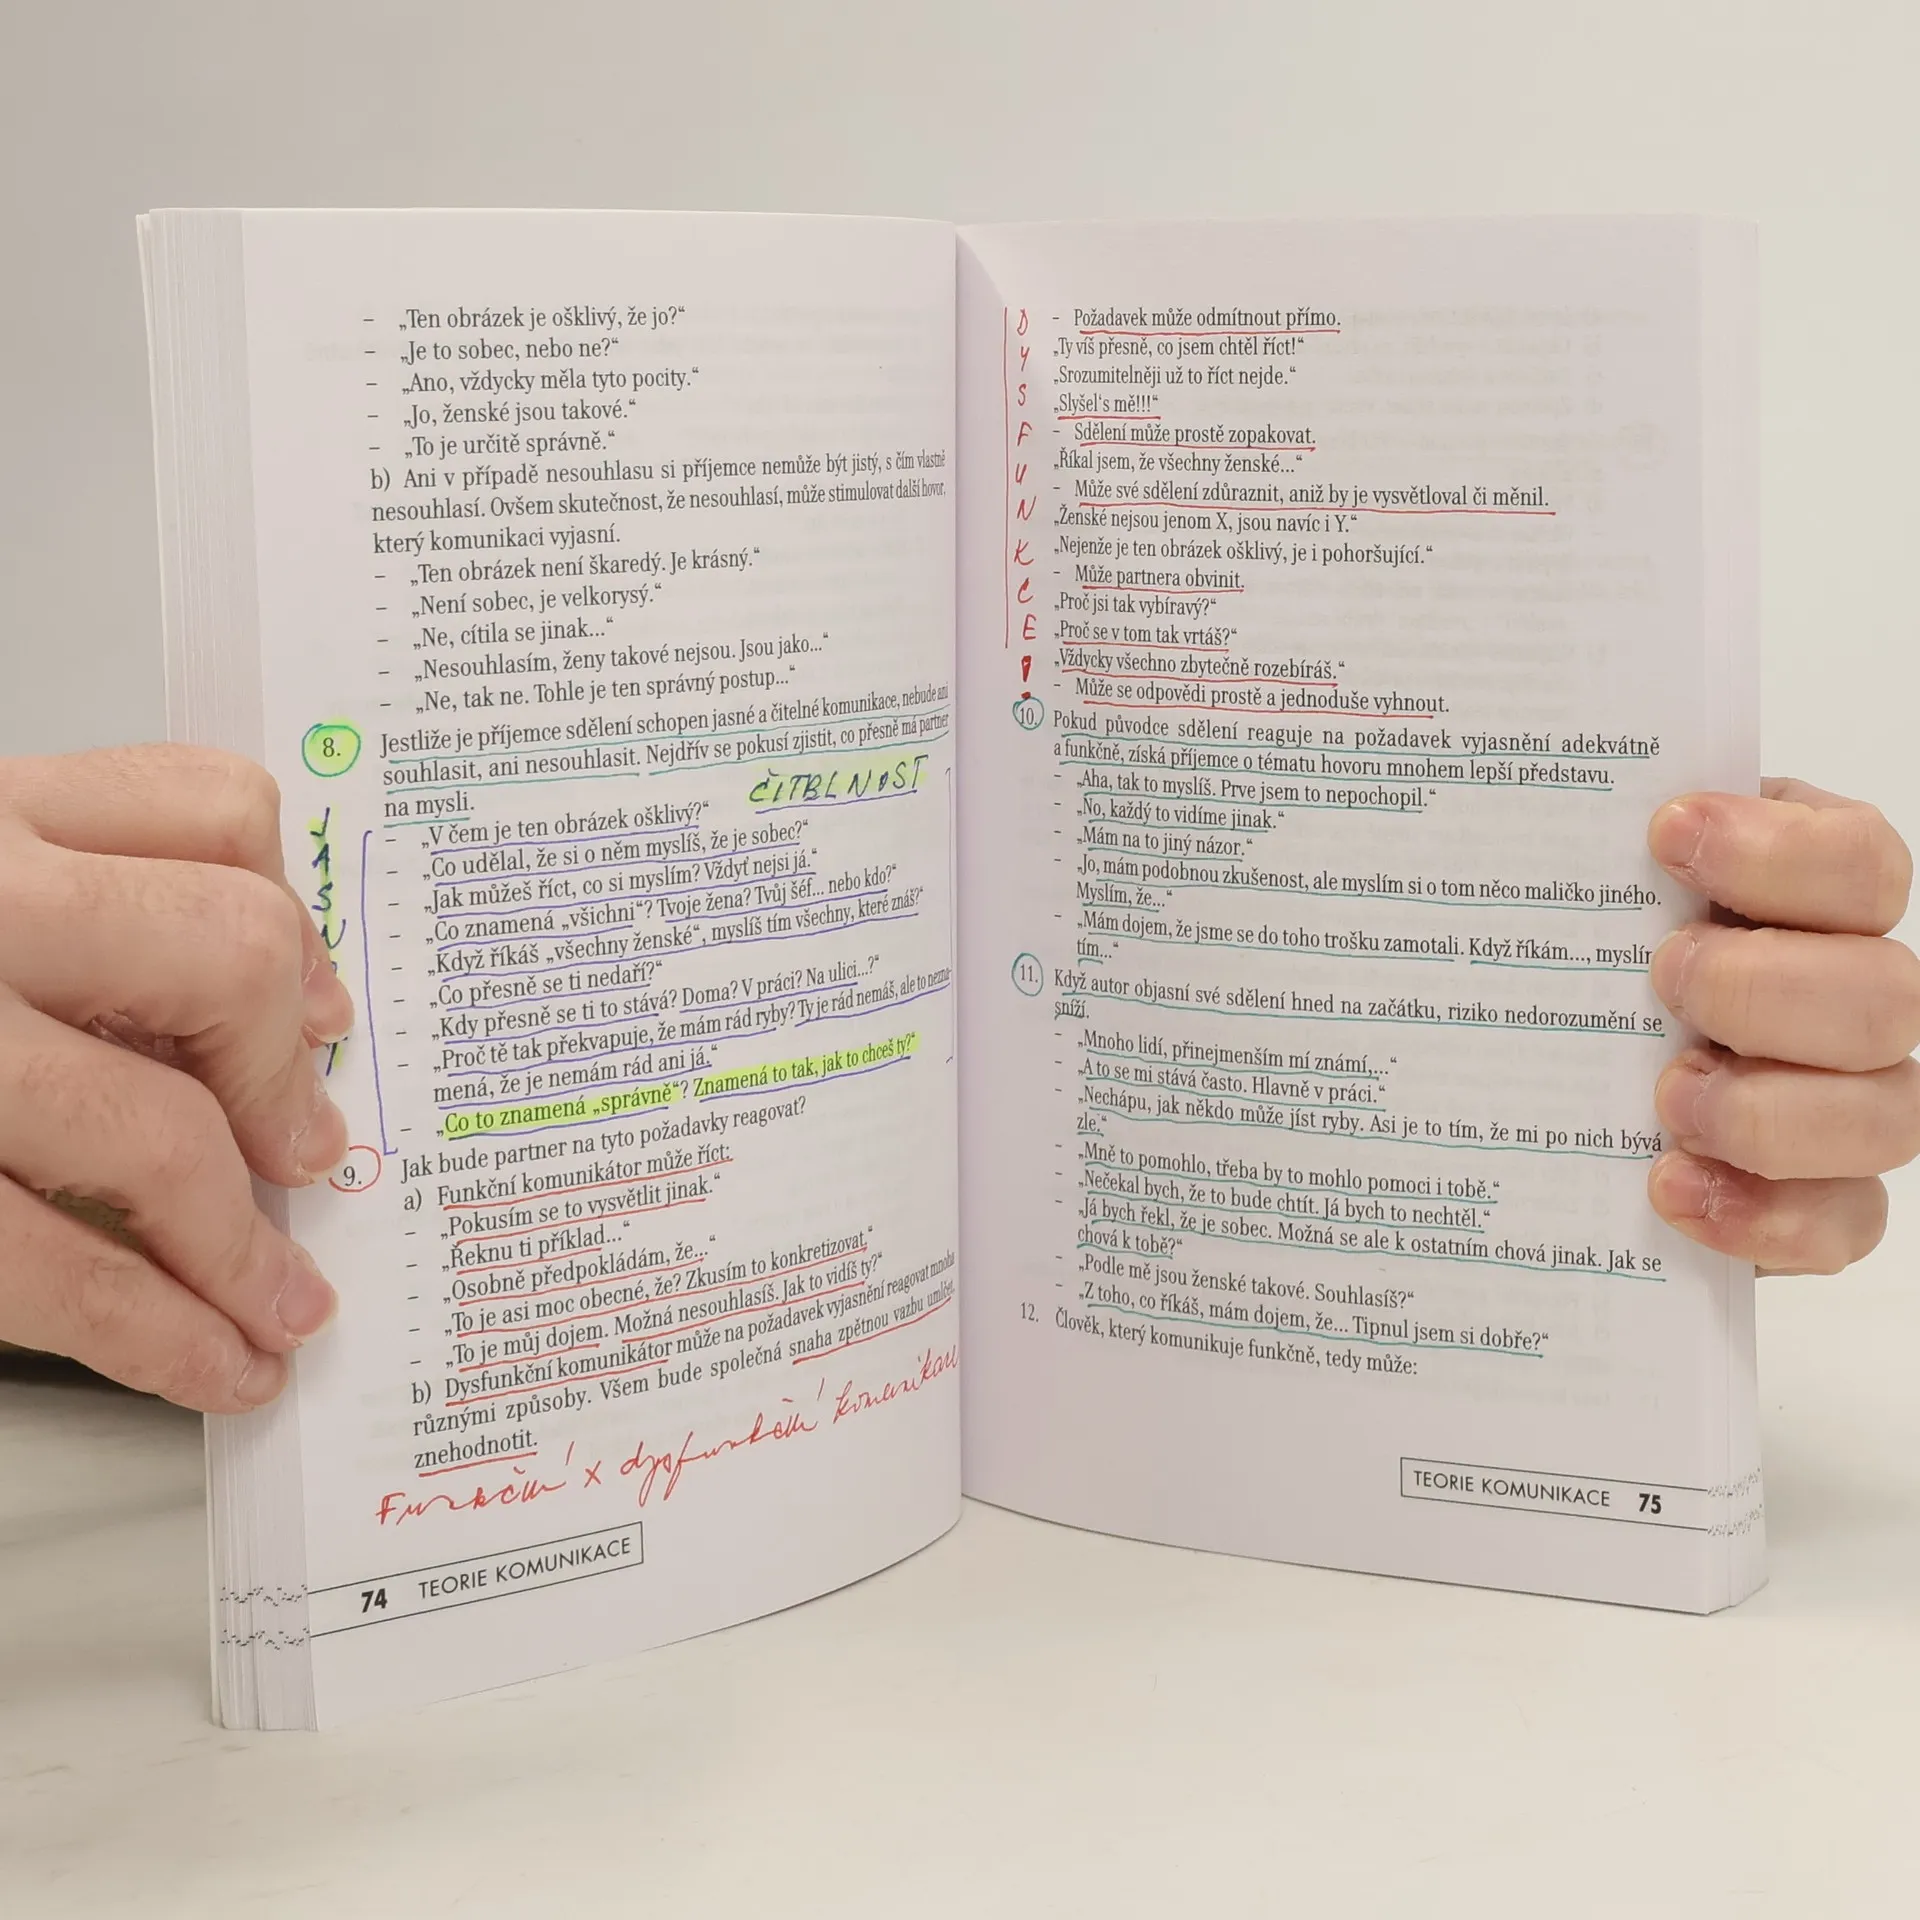 – „Ten obrázek je ošklivý, že jo?“
– „Je to sobec, nebo ne?“
– „Ano, vždycky měla tyto pocity.“
– „Jo, ženské jsou takové.“
– „To je určitě správně.“
b) Ani v případě nesouhlasu si příjemce nemůže být jistý, s čím vlastně
nesouhlasí. Ovšem skutečnost, že nesouhlasí, může stimulovat další hovor,
který komunikaci vyjasní.
– „Ten obrázek není škaredý. Je krásný.“
– „Není sobec, je velkorysý.“
– „Ne, cítila se jinak...“
– „Nesouhlasím, ženy takové nejsou. Jsou jako...“
– „Ne, tak ne. Tohle je ten správný postup...“
8. Jestliže je příjemce sdělení schopen jasné a čitelné komunikace, nebude ani
souhlasit, ani nesouhlasit. Nejdřív se pokusí zjistit, co přesně má partner
na mysli.
ČITELNOST
– „V čem je ten obrázek ošklivý?“
– „Co udělal, že si o něm myslíš, že je sobec?“
– „Jak můžeš říct, co si myslím? Vždyť nejsi já.“
– „Co znamená „všichni“? Tvoje žena? Tvůj šéf... nebo kdo?“
– „Když říkáš „všechny ženské“, myslíš tím všechny, které znáš?“
– „Co přesně se ti nedaří?“
– „Kdy přesně se ti to stává? Doma? V práci? Na ulici...?“
– „Proč tě tak překvapuje, že mám rád ryby? Ty je rád nemáš, ale to nezna-
mená, že je nemám rád ani já.“
– „Co to znamená „správně“? Znamená to tak, jak to chceš ty?“
9. Jak bude partner na tyto požadavky reagovat?
a) Funkční komunikátor může říct:
– „Pokusím se to vysvětlit jinak.“
– „Řeknu ti příklad...“
– „Osobně předpokládám, že...“
– „To je asi moc obecné, že? Zkusím to konkretizovat.“
– „To je můj dojem. Možná nesouhlasíš. Jak to vidíš ty?“
b) Dysfunkční komunikátor může na požadavek vyjasnění reagovat mnoha
různými způsoby. Všem bude společná snaha zpětnou vazbu umlčet,
znehodnotit.
Funkční x dysfunkční
74 TEORIE KOMUNIKACE
DYSFUNKCE!
– Požadavek může odmítnout přímo.
„Ty víš přesně, co jsem chtěl říct!“
„Srozumitelněji už to říct nejde.“
„Slyšel‘s mě!!!“
– Sdělení může prostě zopakovat.
„Říkal jsem, že všechny ženské...“
– Může své sdělení zdůraznit, aniž by je vysvětloval či měnil.
„Ženské nejsou jenom X, jsou navíc i Y.“
„Nejenže je ten obrázek ošklivý, je i pohoršující.“
– Může partnera obvinit.
„Proč jsi tak vybíravý?“
„Proč se v tom tak vrtáš?“
„Vždycky všechno zbytečně rozebíráš.“
– Může se odpovědi prostě a jednoduše vyhnout.
10. Pokud původce sdělení reaguje na požadavek vyjasnění adekvátně
a funkčně, získá příjemce o tématu hovoru mnohem lepší představu.
– „Aha, tak to myslíš. Prve jsem to nepochopil.“
– „No, každý to vidíme jinak.“
– „Mám na to jiný názor.“
– „Jo, mám podobnou zkušenost, ale myslím si o tom něco maličko jiného.
Myslím, že...“
– „Mám dojem, že jsme se do toho trošku zamotali. Když říkám...,
tím...“
11. Když autor objasní své sdělení hned na začátku, riziko nedorozumění se
sníží.
– „Mnoho lidí, přinejmenším mí známí,...“
– „A to se mi stává často. Hlavně v práci.“
– „Nechápu, jak někdo může jíst ryby. Asi je to tím, že mi po nich bývá
zle.“
– „Mně to pomohlo, třeba by to mohlo pomoci i tobě.“
– „Nečekal bych, že to bude chtít. Já bych to nechtěl.“
– „Já bych řekl, že je sobec. Možná se ale k ostatním chová jinak. Jak se
chová k tobě?“
– „Podle mě jsou ženské takové. Souhlasíš?“
– „Z toho, co říkáš, mám dojem, že... Tipnul jsem si dobře?“
12. Člověk, který komunikuje funkčně, tedy může:
TEORIE KOMUNIKACE 75